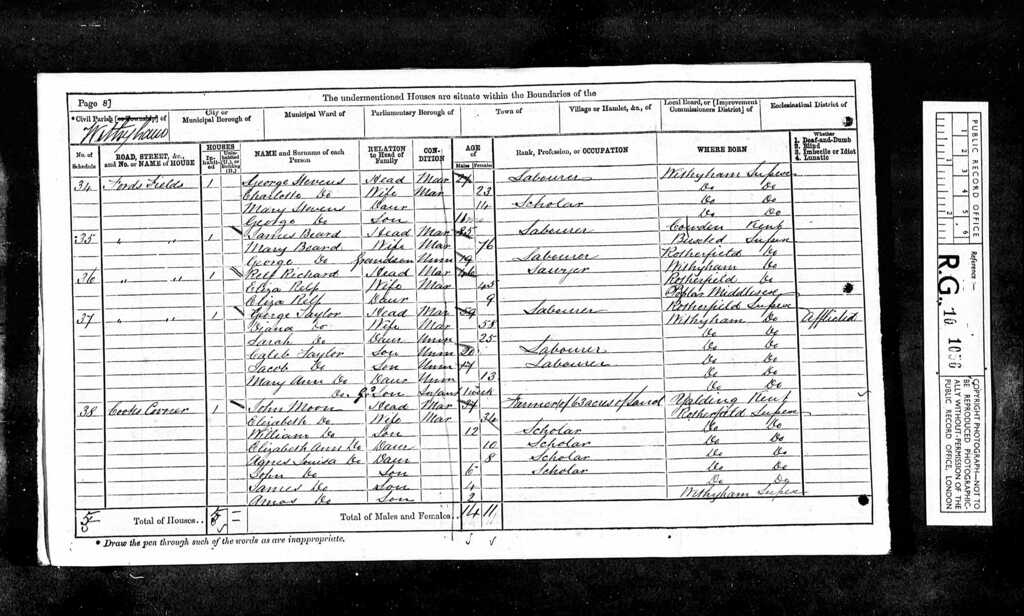 The undermentioned Houses are situate within the Boundaries of the
Page 8]
* Civil Parish [or Township] of
City or Municipal Borough of
Municipal Ward of
Parliamentary Borough of
Town of
Village or Hamlet, &c., of
Local Board, or [Improvement Commissioners District] of
Ecclesiastical District of
Withyham
No. of Schedule
ROAD, STREET, &c., and No. or NAME of HOUSE
HOUSES
Inhabited
Uninhabited (U.), or Building (B.)
NAME and Surname of each Person
RELATION to Head of Family
CONDITION
AGE of
Males
Females
Rank, Profession, or OCCUPATION
WHERE BORN
Whether
1. Deaf-and-Dumb
2. Blind
3. Imbecile or Idiot
4. Lunatic
34 Fords Fields 1 George Stevens Head Mar 27 Labourer Withyham Sussex
Charlotte Do Wife Mar 23 Do Do
Mary Stevens Daur 14 Scholar Do Do
George Do Son 11 Do Do
35 " " 1 James Beard Head Mar 85 Labourer Cowden Kent
Mary Beard Wife Mar 76 Buxted Sussex
George Do Grandson Unm 19 Labourer Rotherfield Do
36 " " 1 Relf Richard Head Mar 46 Sawyer Withyham Do
Eliza Relf Wife Mar 45 Rotherfield Do
Eliza Relf Daur 9 Poplar Middlesex
37 " " 1 George Taylor Head Mar 59 Labourer Rotherfield Sussex
Diana Do Wife Mar 58 Withyham Do Afflicted
Sarah Do Daur Unm 25 Do Do
Caleb Taylor Son Unm 20 Labourer Do Do
Jacob Do Son Unm 17 Labourer Do Do
Mary Ann Do Daur Unm 13 Do Do
Do Gd Son Infant 1 week Do Do
38 Cooks Corner 1 John Moon Head Mar 37 Farmer of 63 acres of Land Yalding Kent
Elizabeth Do Wife Mar 36 Rotherfield Sussex
William Do Son 12 Scholar Do Do
Elizabeth Ann Do Daur 10 Scholar Do Do
Agnes Louisa Do Daur 8 Scholar Do Do
John Do Son 6 Scholar Do Do
James Do Son 4 Do Do
Amos Do Son 2 Withyham Sussex
5 Total of Houses.. 5 — Total of Males and Females.. 14 11
* Draw the pen through such of the words as are inappropriate.
PUBLIC RECORD OFFICE
1 2 3 4 5 6
1 2
Reference :—
R.G. 10
COPYRIGHT PHOTOGRAPH—NOT TO BE REPRODUCED PHOTOGRAPHICALLY WITHOUT PERMISSION OF THE PUBLIC RECORD OFFICE, LONDON